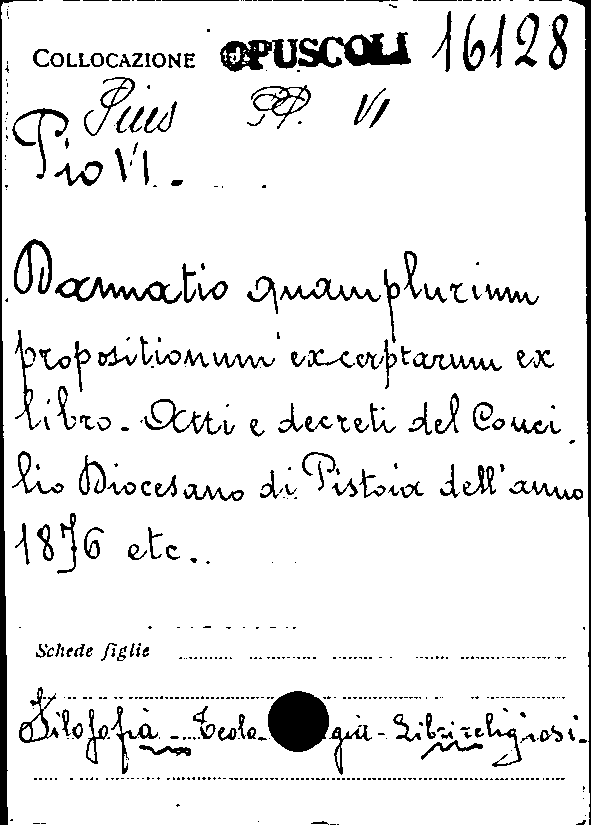 COLLOCAZIONE OPUSCOLI 16128
Pius PP. VI
Pio VI.
Damnatio quamplurium
propositionum excerptarum ex
libro. Atti e decreti del Conci
lio Diocesano di Pistoia dell'anno
1876 etc..
Schede figlie
Filosofia - Teologia - Libri religiosi -